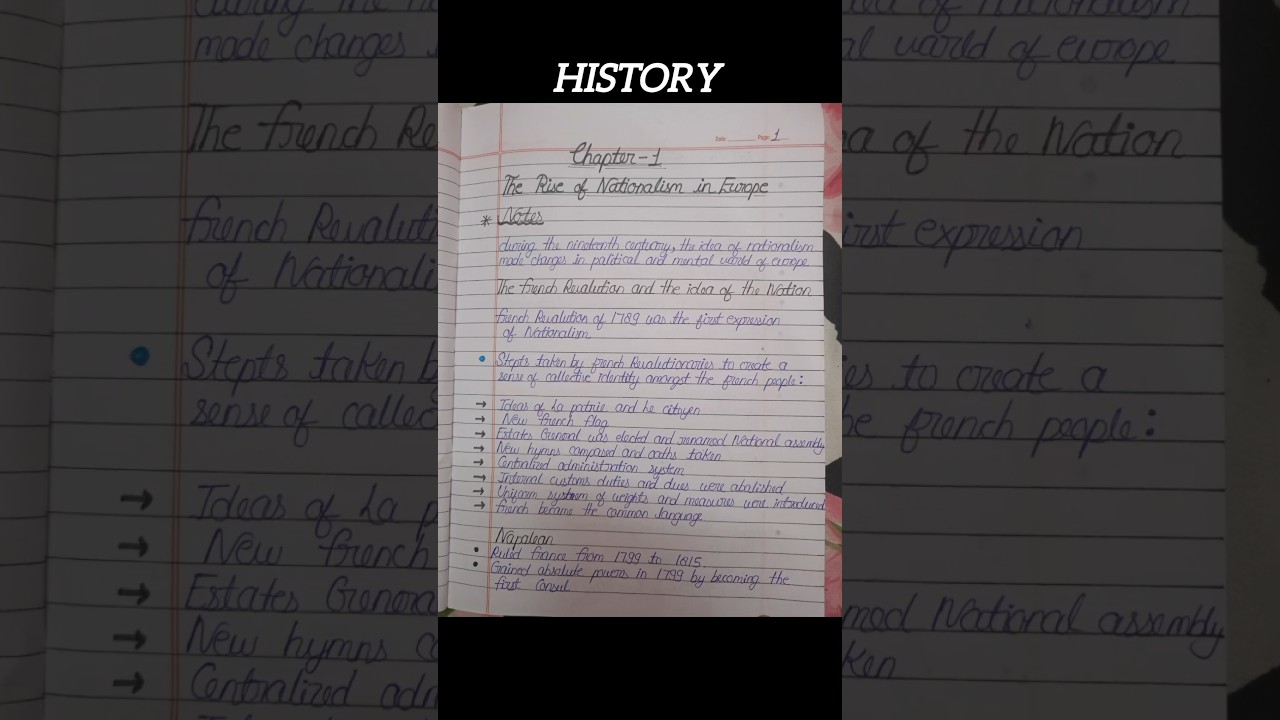 HISTORY
Date Page 1
Chapter-1
The Rise of Nationalism in Europe
* Notes
during the nineteenth century, the idea of nationalism
made changes in political and mental world of europe
The French Revolution and the idea of the Nation
French Revolution of 1789 was the first expression
of Nationalism
• Stepts taken by french Revolutionaries to create a
sense of collective identity amongst the french people:
→ Ideas of La patrie and Le citoyen
→ New french flag
→ Estates General was elected and renamed National assembly
→ New hymns composed and oaths taken
→ Centralized administration system
→ Internal customs duties and dues were abolished
→ Uniform system of weights and measures were introduced
→ french became the common language
Napolean
• Ruled france from 1799 to 1815.
• Gained absolute powers in 1799 by becoming the
first Consul